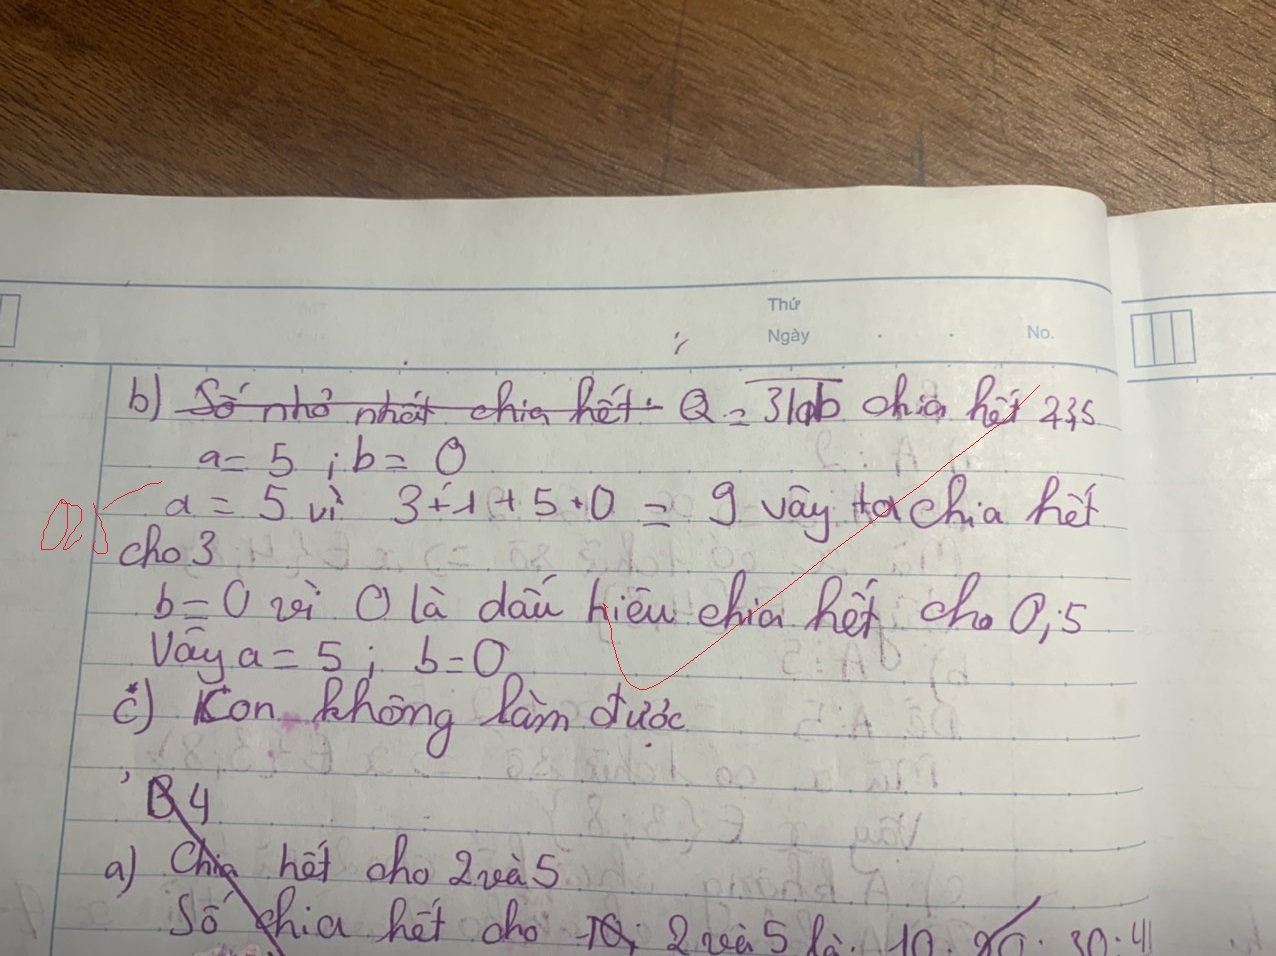 Thứ
Ngày
No.
b) Số nhỏ nhất chia hết Q = 31ab chia hết 2,3,5
a = 5 ; b = 0
a = 5 vì 3+1+5+0 = 9 vậy ta chia hết
cho 3
b = 0 vì 0 là dấu hiệu chia hết cho 0,5
Vậy a = 5 ; b = 0
c) Kon không làm được
B4
a) Chia hết cho 2 và 5
Số chia hết cho 10; 2 và 5 là: 10. 20. 30: